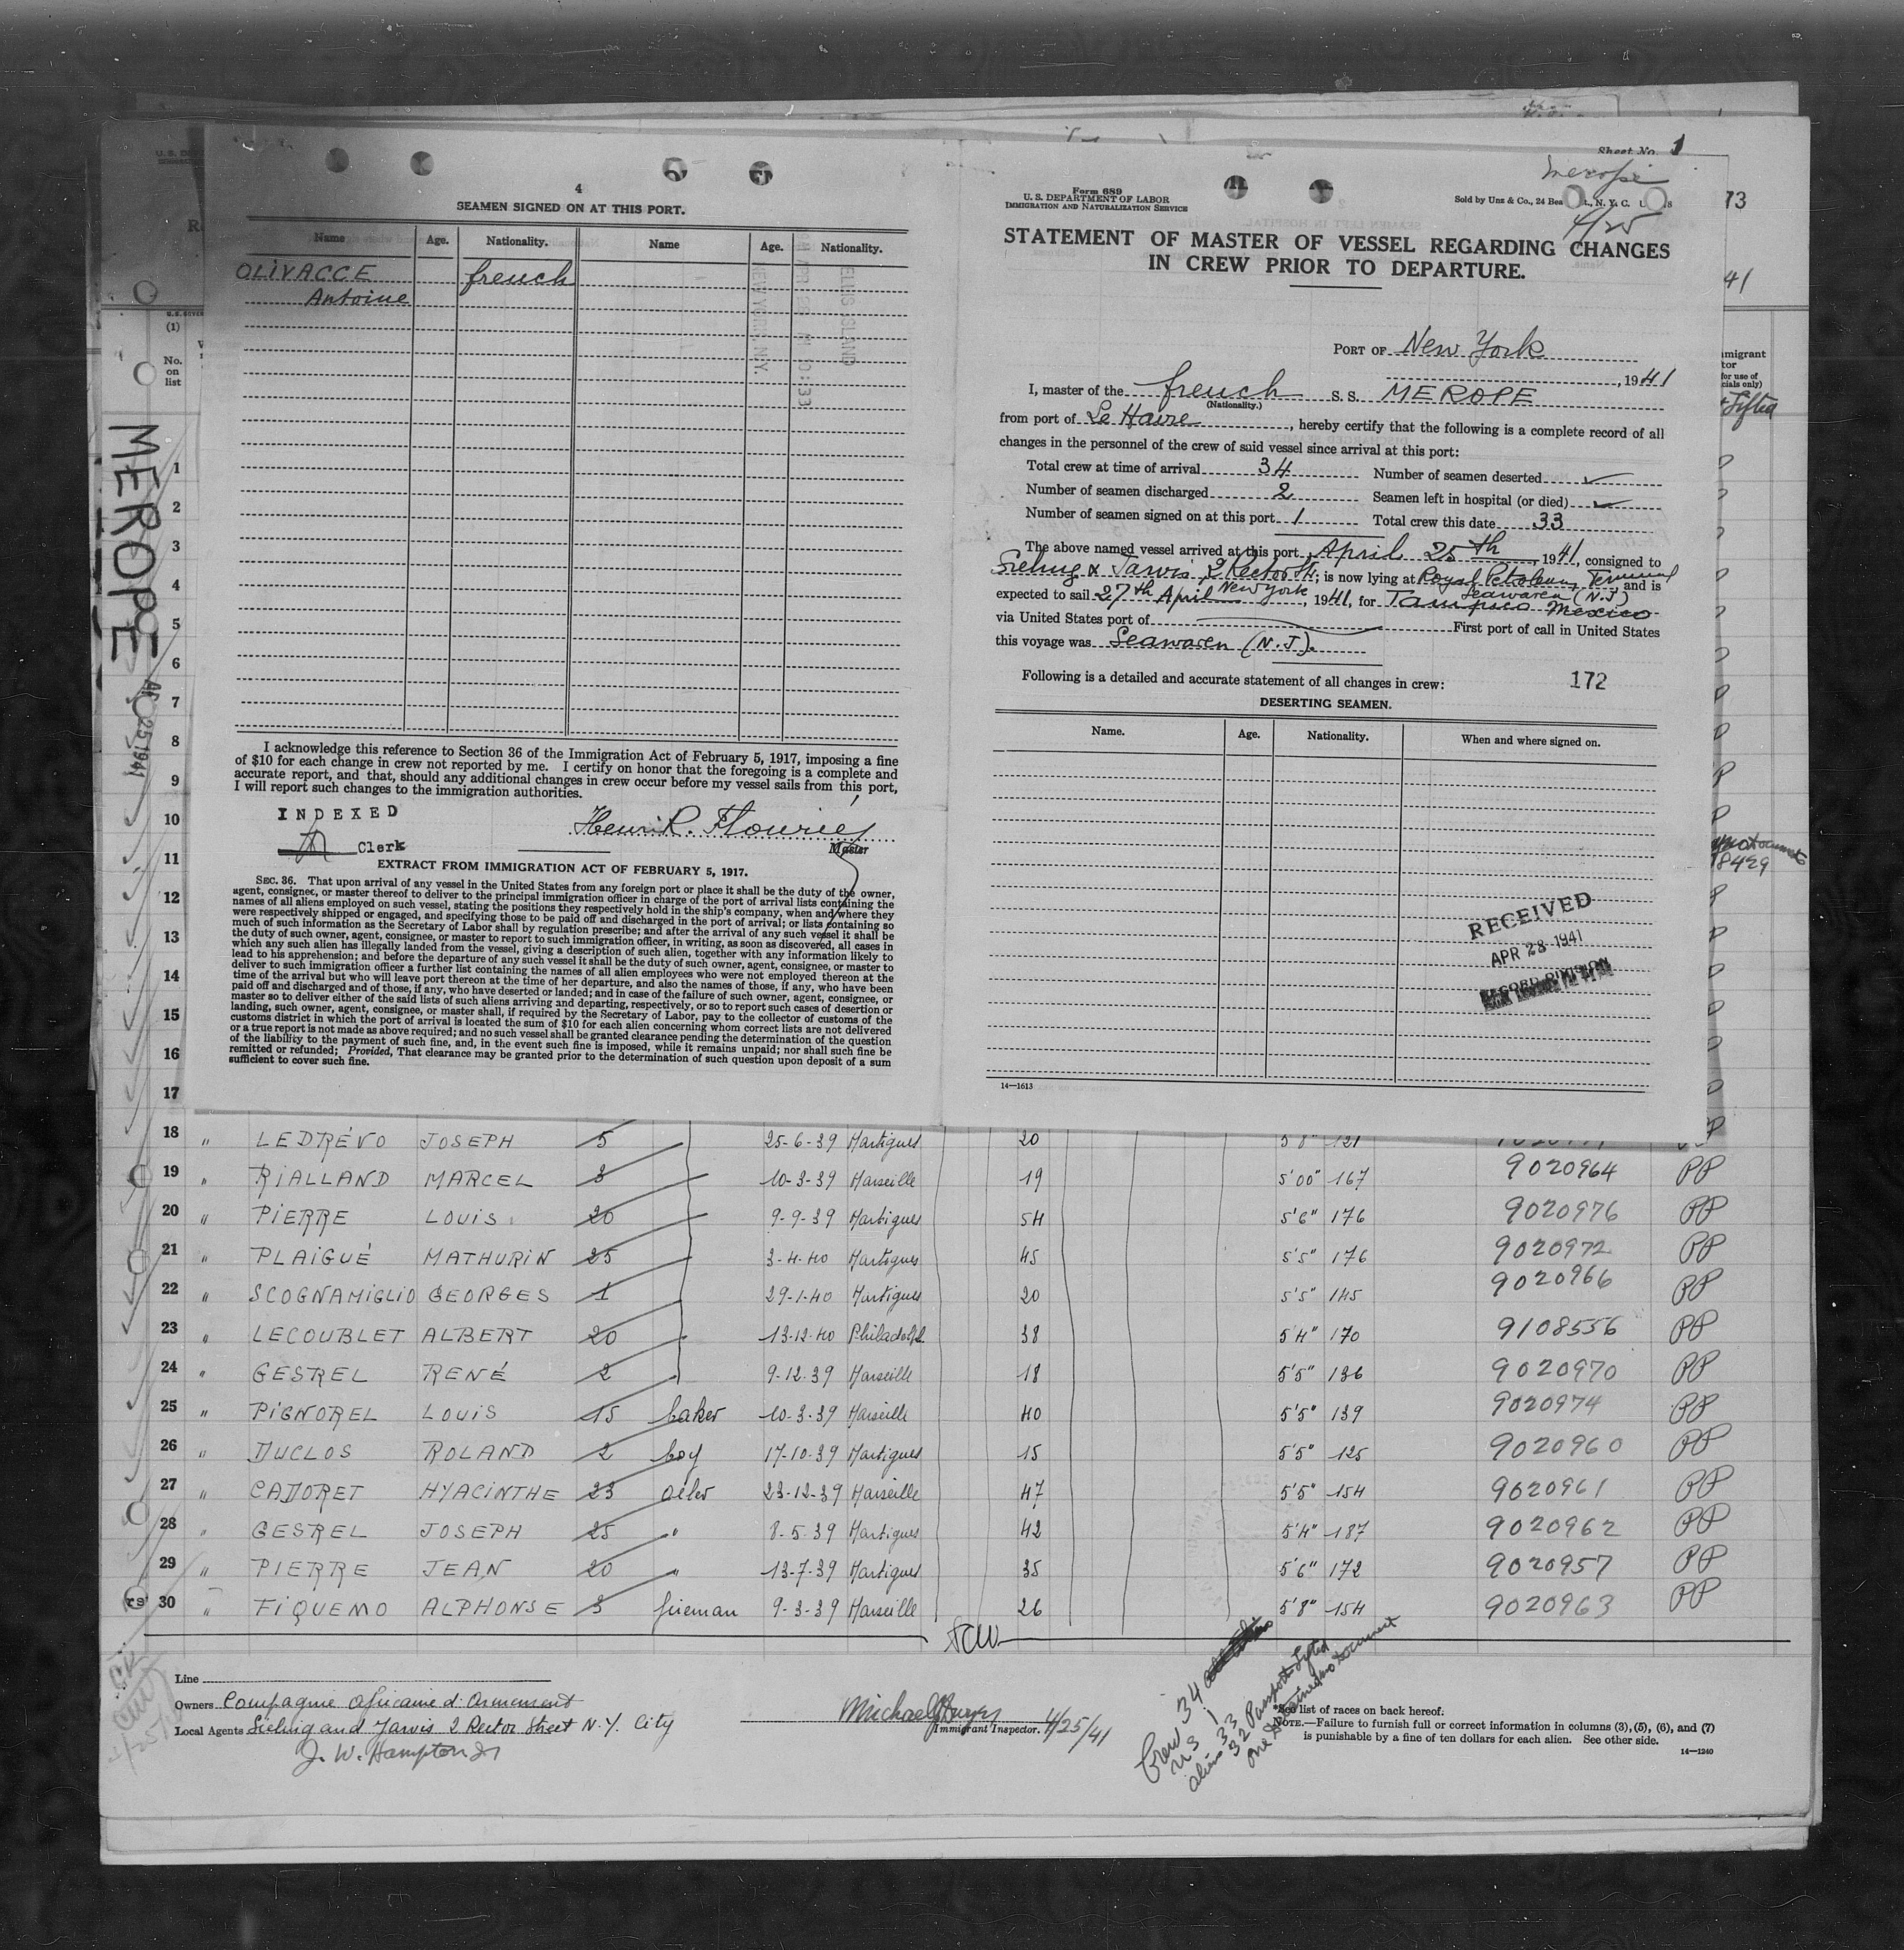 4
SEAMEN SIGNED ON AT THIS PORT.
Name Age. Nationality. Name Age. Nationality.
OLIVACCE french
Antoine
ELLIS ISLAND
NEW YORK, N.Y.
I acknowledge this reference to Section 36 of the Immigration Act of February 5, 1917, imposing a fine
of $10 for each change in crew not reported by me. I certify on honor that the foregoing is a complete and
accurate report, and that, should any additional changes in crew occur before my vessel sails from this port,
I will report such changes to the immigration authorities.
INDEXED
Clerk
Master
EXTRACT FROM IMMIGRATION ACT OF FEBRUARY 5, 1917.
SEC. 36. That upon arrival of any vessel in the United States from any foreign port or place it shall be the duty of the owner,
agent, consignee, or master thereof to deliver to the principal immigration officer in charge of the port of arrival lists containing the
names of all aliens employed on such vessel, stating the positions they respectively hold in the ship's company, when and where they
were respectively shipped or engaged, and specifying those to be paid off and discharged in the port of arrival; or lists containing so
much of such information as the Secretary of Labor shall by regulation prescribe; and after the arrival of any such vessel it shall be
the duty of such owner, agent, consignee, or master to report to such immigration officer, in writing, as soon as discovered, all cases in
which any such alien has illegally landed from the vessel, giving a description of such alien, together with any information likely to
lead to his apprehension; and before the departure of any such vessel it shall be the duty of such owner, agent, consignee, or master to
deliver to such immigration officer a further list containing the names of all alien employees who were not employed thereon at the
time of the arrival but who will leave port thereon at the time of her departure, and also the names of those, if any, who have been
paid off and discharged and of those, if any, who have deserted or landed; and in case of the failure of such owner, agent, consignee, or
master so to deliver either of the said lists of such aliens arriving and departing, respectively, or so to report such cases of desertion or
landing, such owner, agent, consignee, or master shall, if required by the Secretary of Labor, pay to the collector of customs of the
customs district in which the port of arrival is located the sum of $10 for each alien concerning whom correct lists are not delivered
or a true report is not made as above required; and no such vessel shall be granted clearance pending the determination of the question
of the liability to the payment of such fine, and, in the event such fine is imposed, while it remains unpaid; nor shall such fine be
remitted or refunded; Provided, That clearance may be granted prior to the determination of such question upon deposit of a sum
sufficient to cover such fine.
Sheet No. 1
Merope
4/25
Form 689
U. S. DEPARTMENT OF LABOR
IMMIGRATION AND NATURALIZATION SERVICE
Sold by Unz & Co., 24 Bea t., N. Y. C.
STATEMENT OF MASTER OF VESSEL REGARDING CHANGES
IN CREW PRIOR TO DEPARTURE.
PORT OF New York
, 1941
I, master of the french S. S. MEROPE
(Nationality.)
from port of Le Havre, hereby certify that the following is a complete record of all
changes in the personnel of the crew of said vessel since arrival at this port:
Total crew at time of arrival 34 Number of seamen deserted ✓
Number of seamen discharged 2 Seamen left in hospital (or died) ✓
Number of seamen signed on at this port 1 Total crew this date 33
The above named vessel arrived at this port April 25th, 1941, consigned to
Sieling & Jarvis 2 Rector St. New York; is now lying at Royal Petroleum Terminal Seawaren (N.J) and is
expected to sail 27th April, 1941, for Tampico Mexico
via United States port of First port of call in United States
this voyage was Seawaren (N.J).
Following is a detailed and accurate statement of all changes in crew:
172
DESERTING SEAMEN.
Name. Age. Nationality. When and where signed on.
RECEIVED
APR 28 1941
RECORD DIVISION
14—1613
73
41
MEROPE
25 1941
(1)
No. on list
1
2
3
4
5
6
7
8
9
10
11
12
13
14
15
16
17
18 " LEDRÉVO JOSEPH 5 25-6-39 Martigues 20 5'8" 121
19 " RIALLAND MARCEL 3 10-3-39 Marseille 19 5'00" 167 9020964 PP
20 " PIERRE LOUIS 20 9-9-39 Martigues 54 5'6" 176 9020976 PP
21 " PLAIGUÉ MATHURIN 25 3-4-40 Martigues 45 5'5" 176 9020972 PP
22 " SCOGNAMIGLIO GEORGES 1 29-1-40 Martigues 20 5'5" 145 9020966 PP
23 " LECOUBLET ALBERT 20 13-12-40 Philadelph. 38 5'4" 170 9108556 PP
24 " GESREL RENÉ 2 9-12-39 Marseille 18 5'5" 136 9020970 PP
25 " PIGNOREL LOUIS 15 baker 10-3-39 Marseille 40 5'5" 139 9020974 PP
26 " DUCLOS ROLAND 2 boy 17-10-39 Martigues 15 5'5" 125 9020960 PP
27 " CADORET HYACINTHE 23 oiler 23-12-39 Marseille 47 5'5" 154 9020961 PP
28 " GESREL JOSEPH 25 " 8-5-39 Martigues 42 5'4" 187 9020962 PP
29 " PIERRE JEAN 20 " 13-7-39 Martigues 35 5'6" 172 9020957 PP
30 " FIQUEMO ALPHONSE 3 fireman 9-3-39 Marseille 26 5'8" 154 9020963 PP
Line
Owners Compagnie Africaine d'Armement
Local Agents Sieling and Jarvis 2 Rector Street N.Y. City
J. W. Hampton Jr
Immigrant Inspector. 4/25/41
Crew 34
US 1
alien 33
32 Passports Lifted
one detained no document
*See list of races on back hereof.
NOTE.—Failure to furnish full or correct information in columns (3), (5), (6), and (7)
is punishable by a fine of ten dollars for each alien. See other side.
14—1240